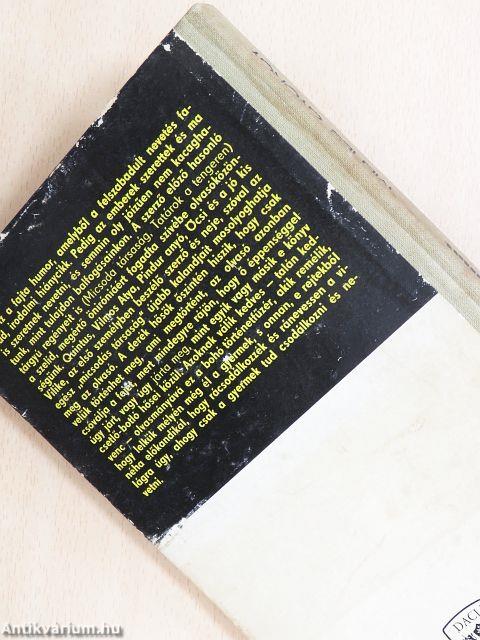 z a fajta humor, amérből a felszabadult nevetés fa-
kad, irodalmi hiánycikk. Pedig az emberek szerettek és ma
is szeretnek nevetni, és semmin oly jóízűen nem kacagha-
tunk, mint tulajdon balfogásainkon. A szerző előző hasonló
tárgyú regényeit is (Micsoda társaság, Tatárok a tengeren)
a szelíd, megértő öniróniáért fogadta szívébe olvasóközön-
ségünk. Ogintus, Vilmos Apó, Pindur anyó, Öcsi és a jó kis
Vilike, az első személyben beszélő szerző és neje, szóval az
egész „micsodás társaság" újabb kalandjait mosolyoghatja
meg az olvasó. A derék hősök őszintén hiszik, hogy csak
velük történhet meg, ami megtörtént, az olvasó azonban
csóválja a fejét, mert mindegyre rájön, hogy ő éppenséggel
úgy járt, vagy úgy járta meg, mint egyik vagy másik e könyv
csetlő-botló hősei közül. Azoknak válik kedves — talán ked-
venc — olvasmányává ez a boho történetfüzér, akik remélik,
hogy lelkük mélyén még él a gyermek, s onnan, e rejtekből
néha előkandikál, hogy rácsodálkozzék és ránevessen a vi-
lágra úgy, ahogy csak a gyermek tud csodálkozni és ne-
vetni.
DACI
Antikvárium.hu